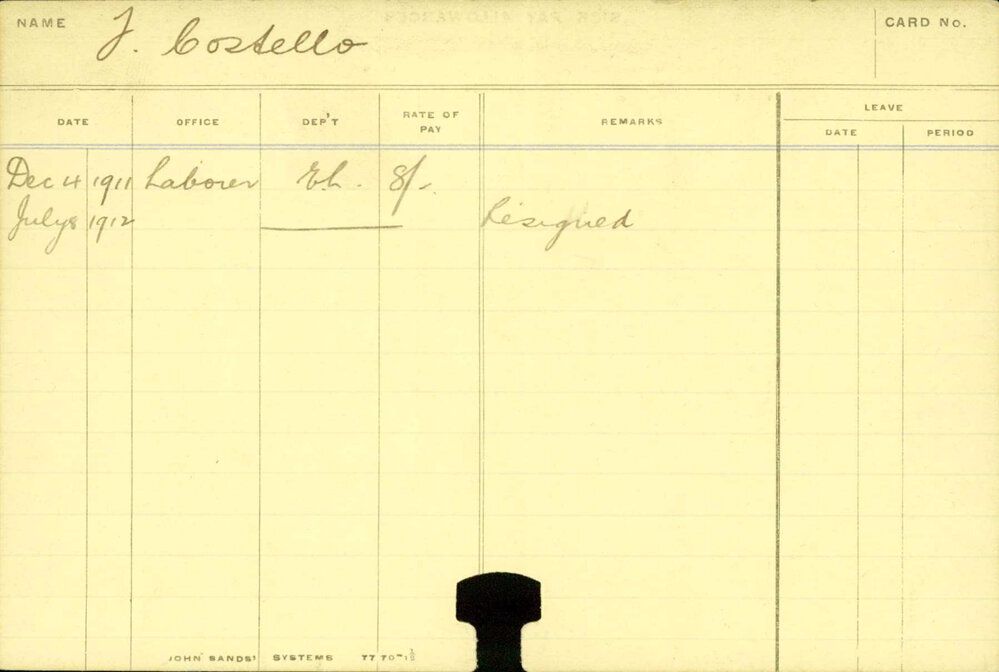 NAME J. Costello CARD No.
DATE OFFICE DEP'T RATE OF PAY REMARKS LEAVE
DATE PERIOD
Dec 4 1911 Laborer 8/-.
July 8 1912 Resigned
JOHN SANDS' SYSTEMS 77 70